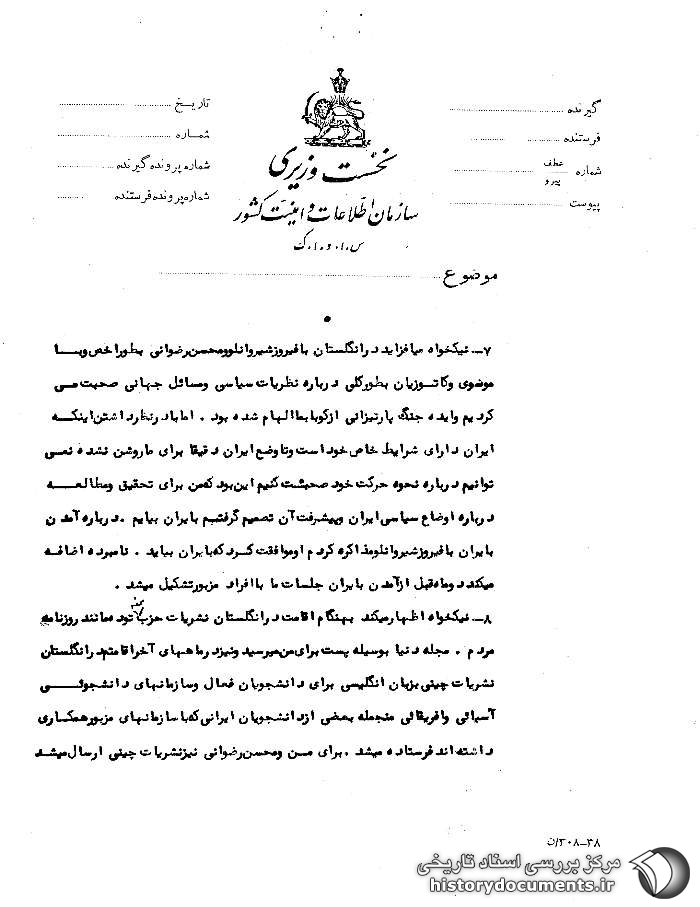 گیرنده
فرستنده
شماره عطف پیرو
پیوست
تاریخ
شماره
شماره پرونده گیرنده
شماره پرونده فرستنده
نخست وزیری
سازمان اطلاعات و امنیت کشور
س.ا.و.ا.ک
موضوع
۷ـ نیکخواه میافزاید در انگلستان با فیروز شیروانلو و محسن رضوانی بطور اخص و با
موضوی و کاتوزیان بطور کلی درباره نظریات سیاسی و مسائل جهانی صحبت می
کردیم و ایده جنگ پارتیزانی از کوبا بما الهام شده بود . اما با در نظر داشتن اینکه
ایران دارای شرایط خاص خود است و تا وضع ایران دقیقا برای ما روشن نشده نمی
توانیم درباره نحوه حرکت خود صحبت کنیم این بود که من برای تحقیق و مطالعه
درباره اوضاع سیاسی ایران و پیشرفت آن تصمیم گرفتم بایران بیایم . درباره آمدن
بایران با فیروز شیروانلو مذاکره کردم او موافقت کرد که بایران بیاید . نامبرده اضافه
میکند دو ماه قبل از آمدن بایران جلسات ما با افراد مزبور تشکیل میشد .
۸ـ نیکخواه اظهار میکند بهنگام اقامت در انگلستان نشریات حزب توده مانند روزنامه
مردم . مجله دنیا بوسیله پست برای من میرسید و نیز در ماههای آخر اقامتم در انگلستان
نشریات چینی بزبان انگلیسی برای دانشجویان فعال و سازمانهای دانشجوئی
آسیائی و افریقائی منجمله بعضی از دانشجویان ایرانی که با سازمانهای مزبور همکاری
داشته‌اند فرستاده میشد . برای من و محسن رضوانی نیز نشریات چینی ارسال میشد
۳۸-۳۰۸/ن
مرکز بررسی اسناد تاریخی
historydocuments.ir